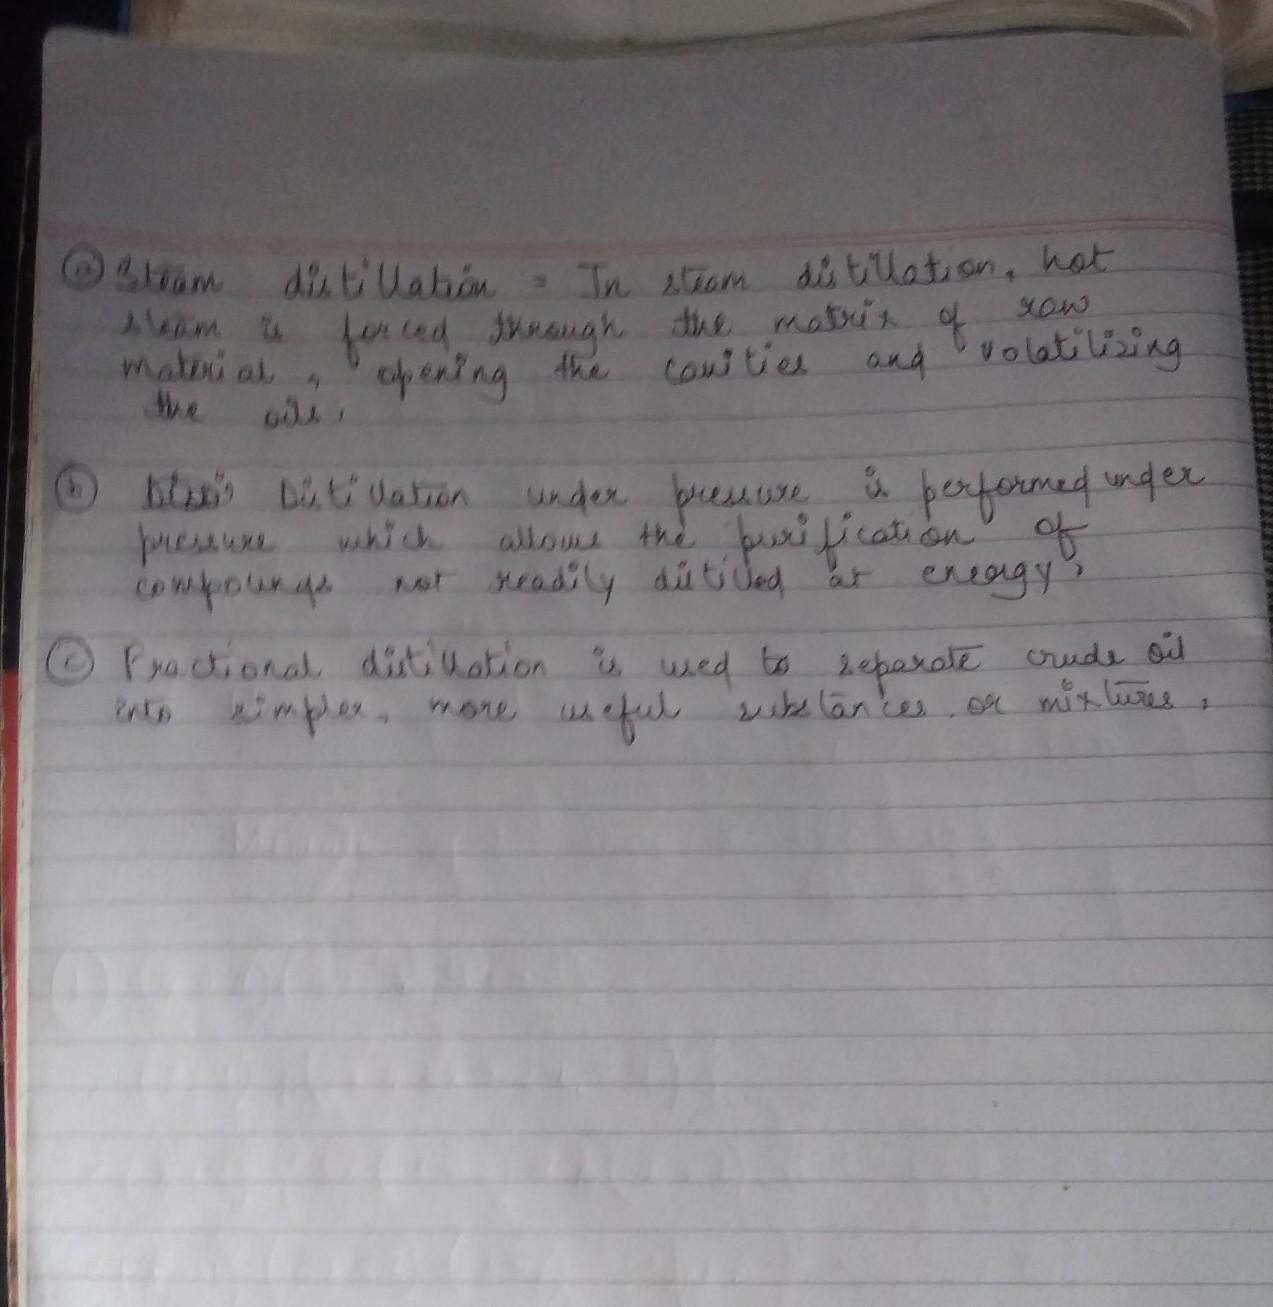 (a) Steam distillation = In steam distillation, hot
steam is forced through the matrix of raw
material, opening the cavities and volatilizing
the oils.
(b) Distillation under pressure is performed under
pressure which allows the purification of
compounds not readily distilled at energy,
(c) Fractional distillation is used to separate crude oil
into simpler, more useful substances or mixtures,